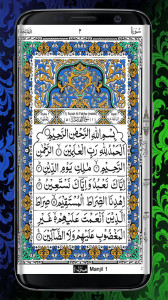 ٢
Surah Al Fatiha (makki)
بِسْمِ اللهِ الرَّحْمٰنِ الرَّحِيْمِ
اَلْحَمْدُ لِلّٰهِ رَبِّ الْعٰلَمِيْنَ الرَّحْمٰنِ
الرَّحِيْمِ مٰلِكِ يَوْمِ الدِّيْنِ
اِيَّاكَ نَعْبُدُ وَاِيَّاكَ نَسْتَعِيْنُ
اِهْدِنَا الصِّرَاطَ الْمُسْتَقِيْمَ صِرَاطَ
الَّذِيْنَ اَنْعَمْتَ عَلَيْهِمْ غَيْرِ
الْمَغْضُوْبِ عَلَيْهِمْ وَلَا الضَّآلِّيْنَ
Manjil 1